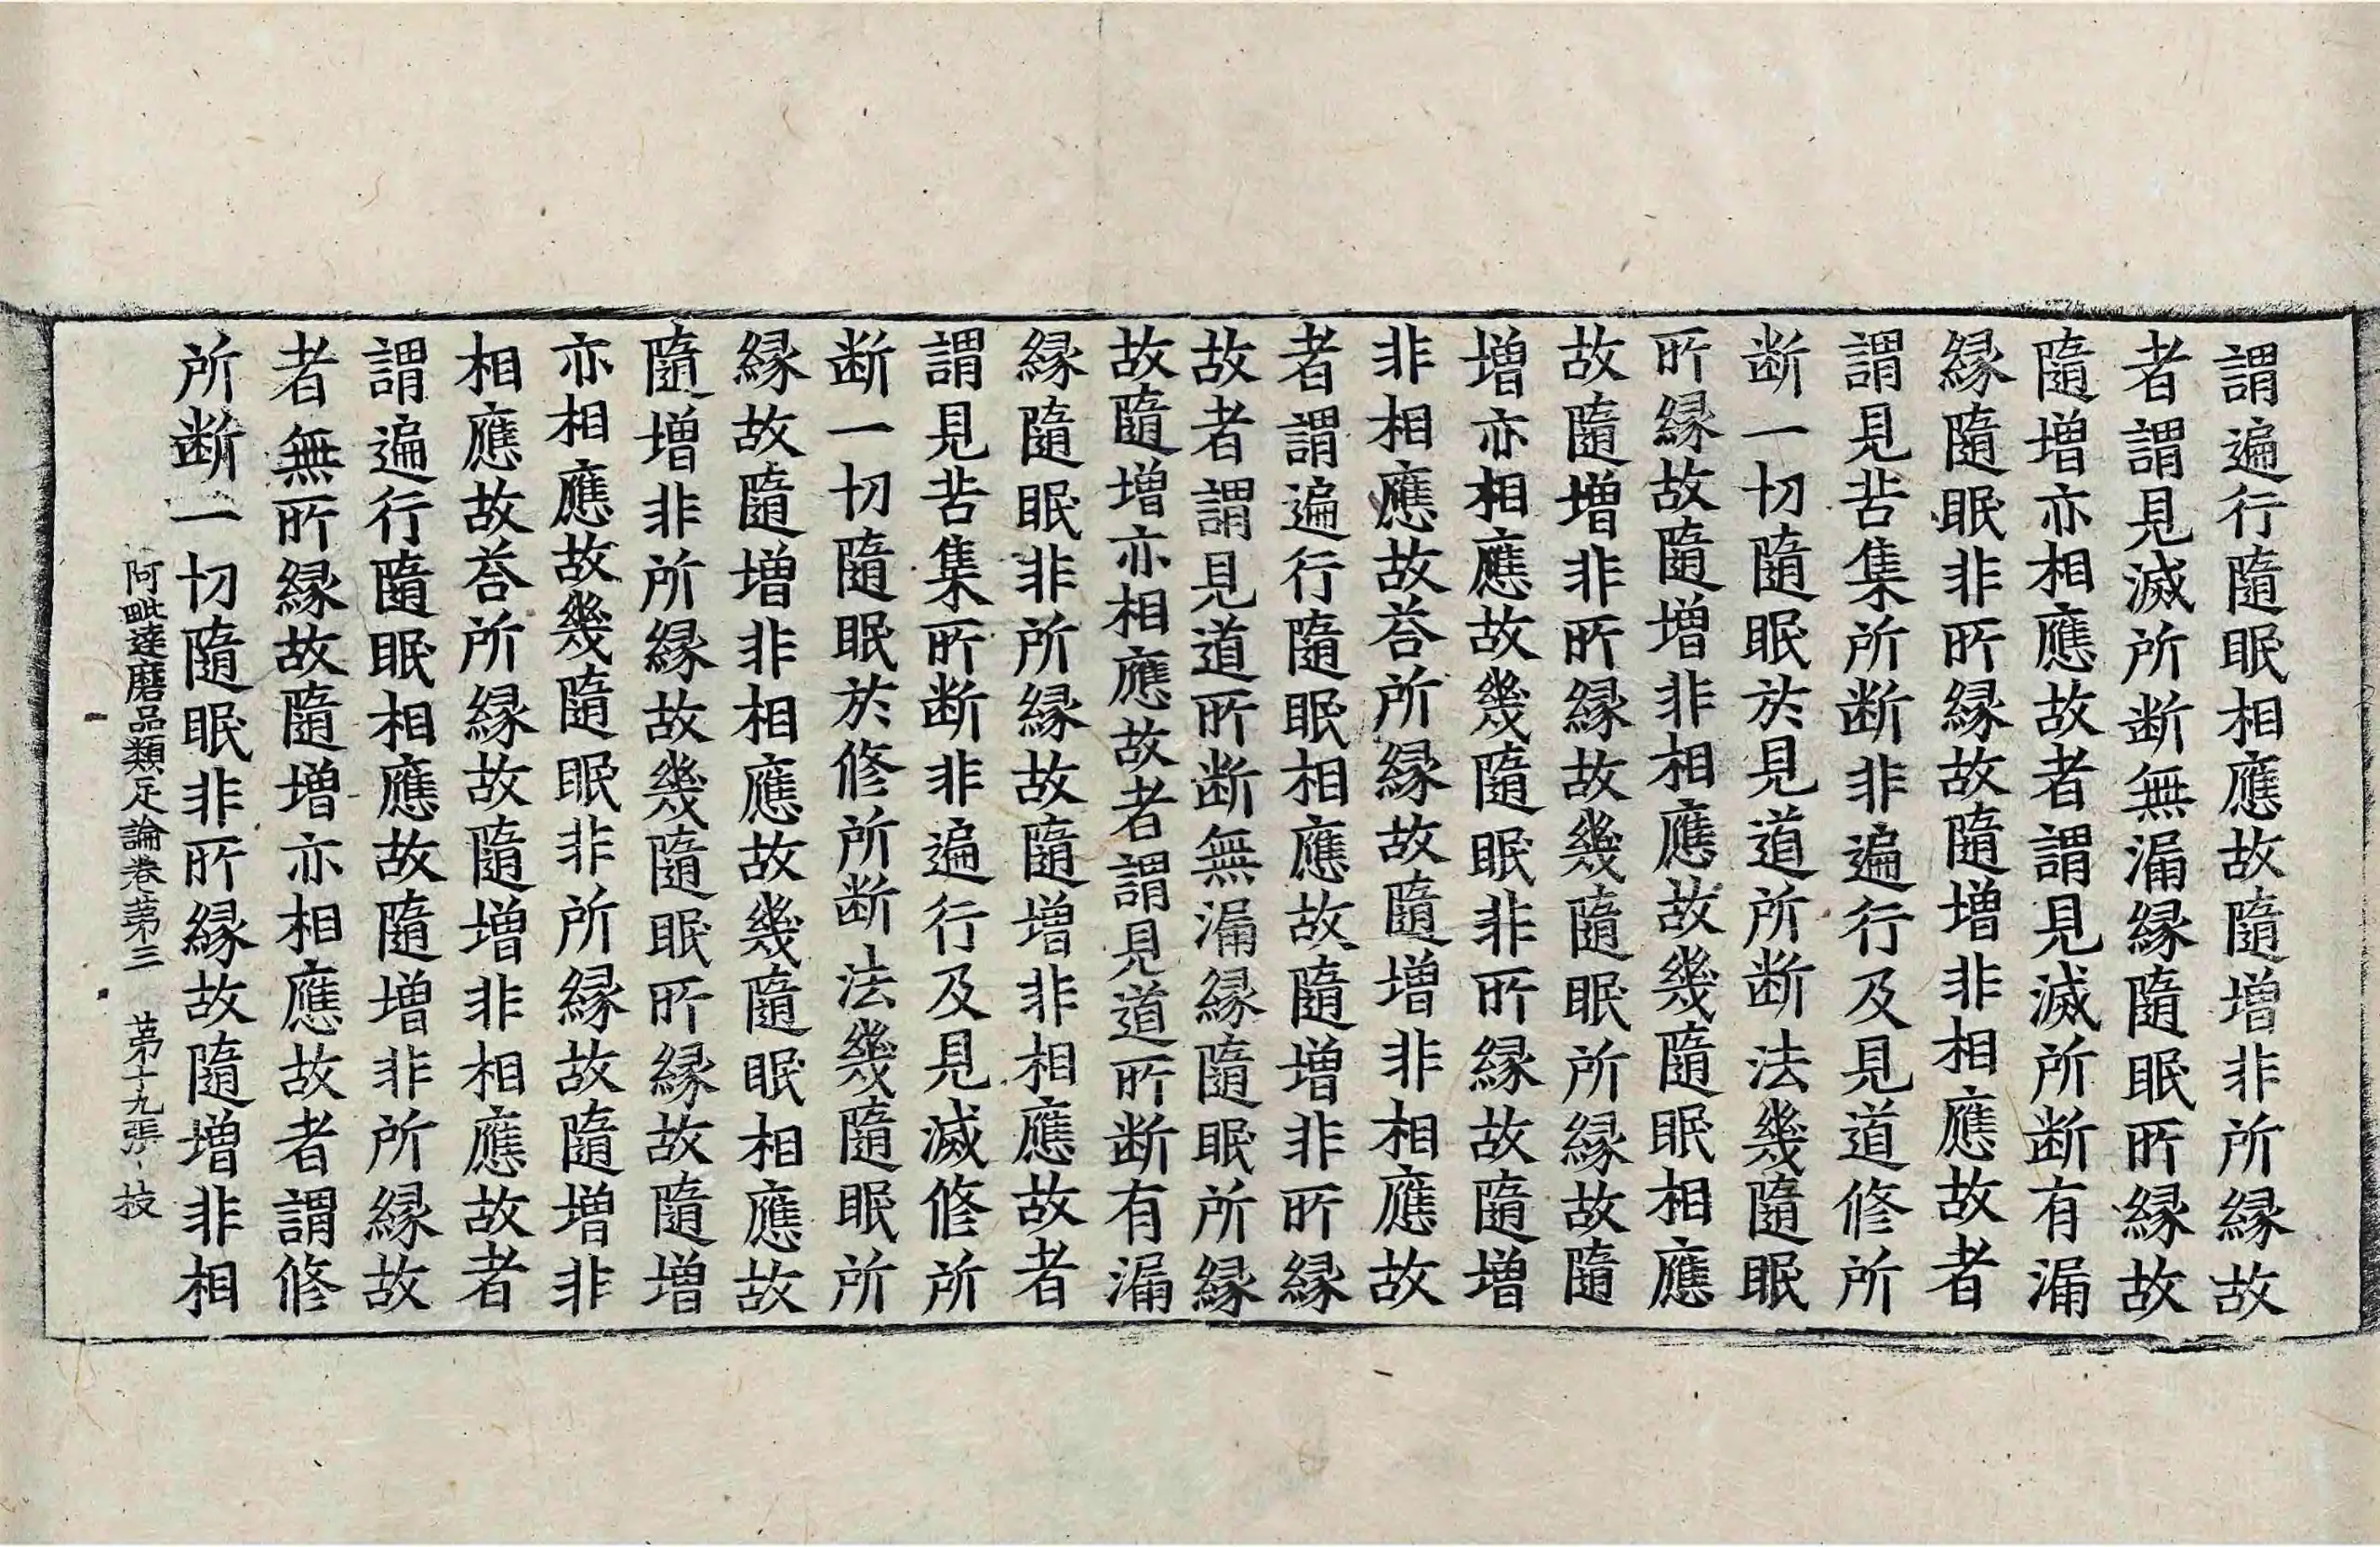 謂遍行隨眠相應故隨增非所縁故
者謂見滅所断無漏縁隨眠所縁故
隨增亦相應故者謂見滅所断有漏
縁隨眠非所縁故隨增非相應故者
謂見苦集所断非遍行及見道修所
断一切隨眠於見道所断法幾隨眠
所縁故隨增非相應故幾隨眠相應
故隨增非所縁故幾隨眠所縁故隨
增亦相應故幾隨眠非所縁故隨增
非相應故荅所縁故隨增非相應故
者謂遍行隨眠相應故隨增非所縁
故者謂見道所断無漏縁隨眠所縁
故隨增亦相應故者謂見道所断有漏
縁隨眠非所縁故隨增非相應故者
謂見苦集所断非遍行及見滅修所
断一切隨眠於修所断法幾隨眠所
縁故隨增非相應故幾隨眠相應故
隨增非所縁故幾隨眠所縁故隨增
亦相應故幾隨眠非所縁故隨增非
相應故荅所縁故隨增非相應故者
謂遍行隨眠相應故隨增非所縁故
者無所縁故隨增亦相應故者謂修
所断一切隨眠非所縁故隨增非相
阿毗達磨品類足論卷苐三 苐十九張 技